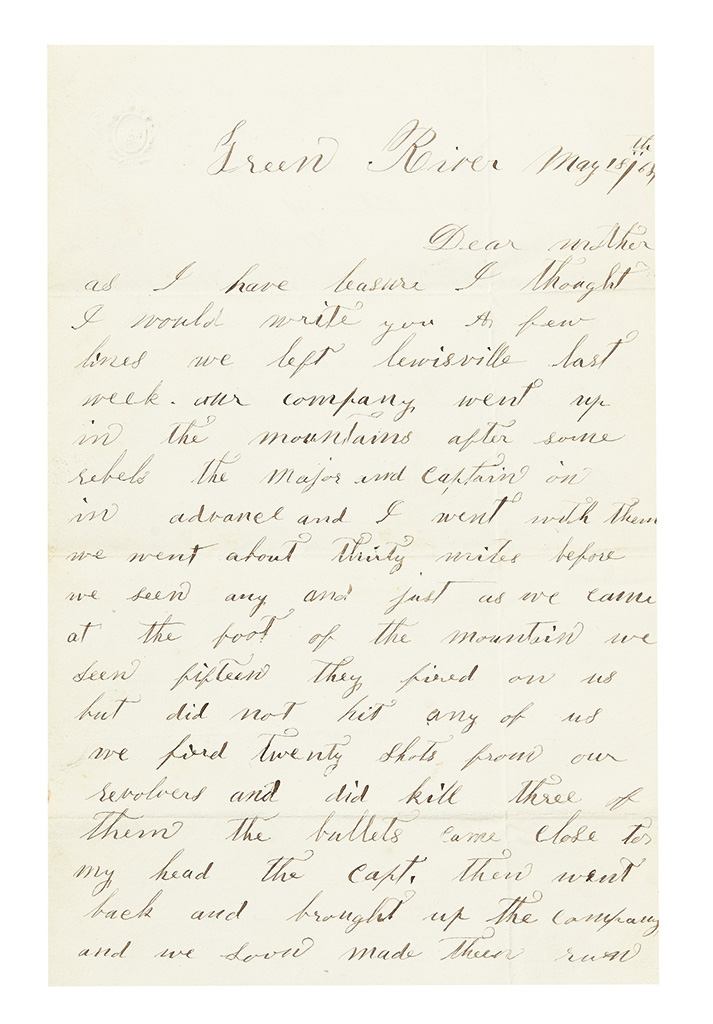 Green River May 18th
Dear mother
as I have leasure I thought
I would write you A few
lines we left lewisville last
week. our company went up
in the mountains after some
rebels the major and captain in
in advance and I went with them
we went about thirty miles before
we seen any and just as we came
at the foot of the mountain we
seen fifteen they fired on us
but did not hit any of us
we fird twenty shots from our
revolvers and did kill three of
them the bullets came close to
my head the capt. then went
back and brought up the company
and we soon made them run